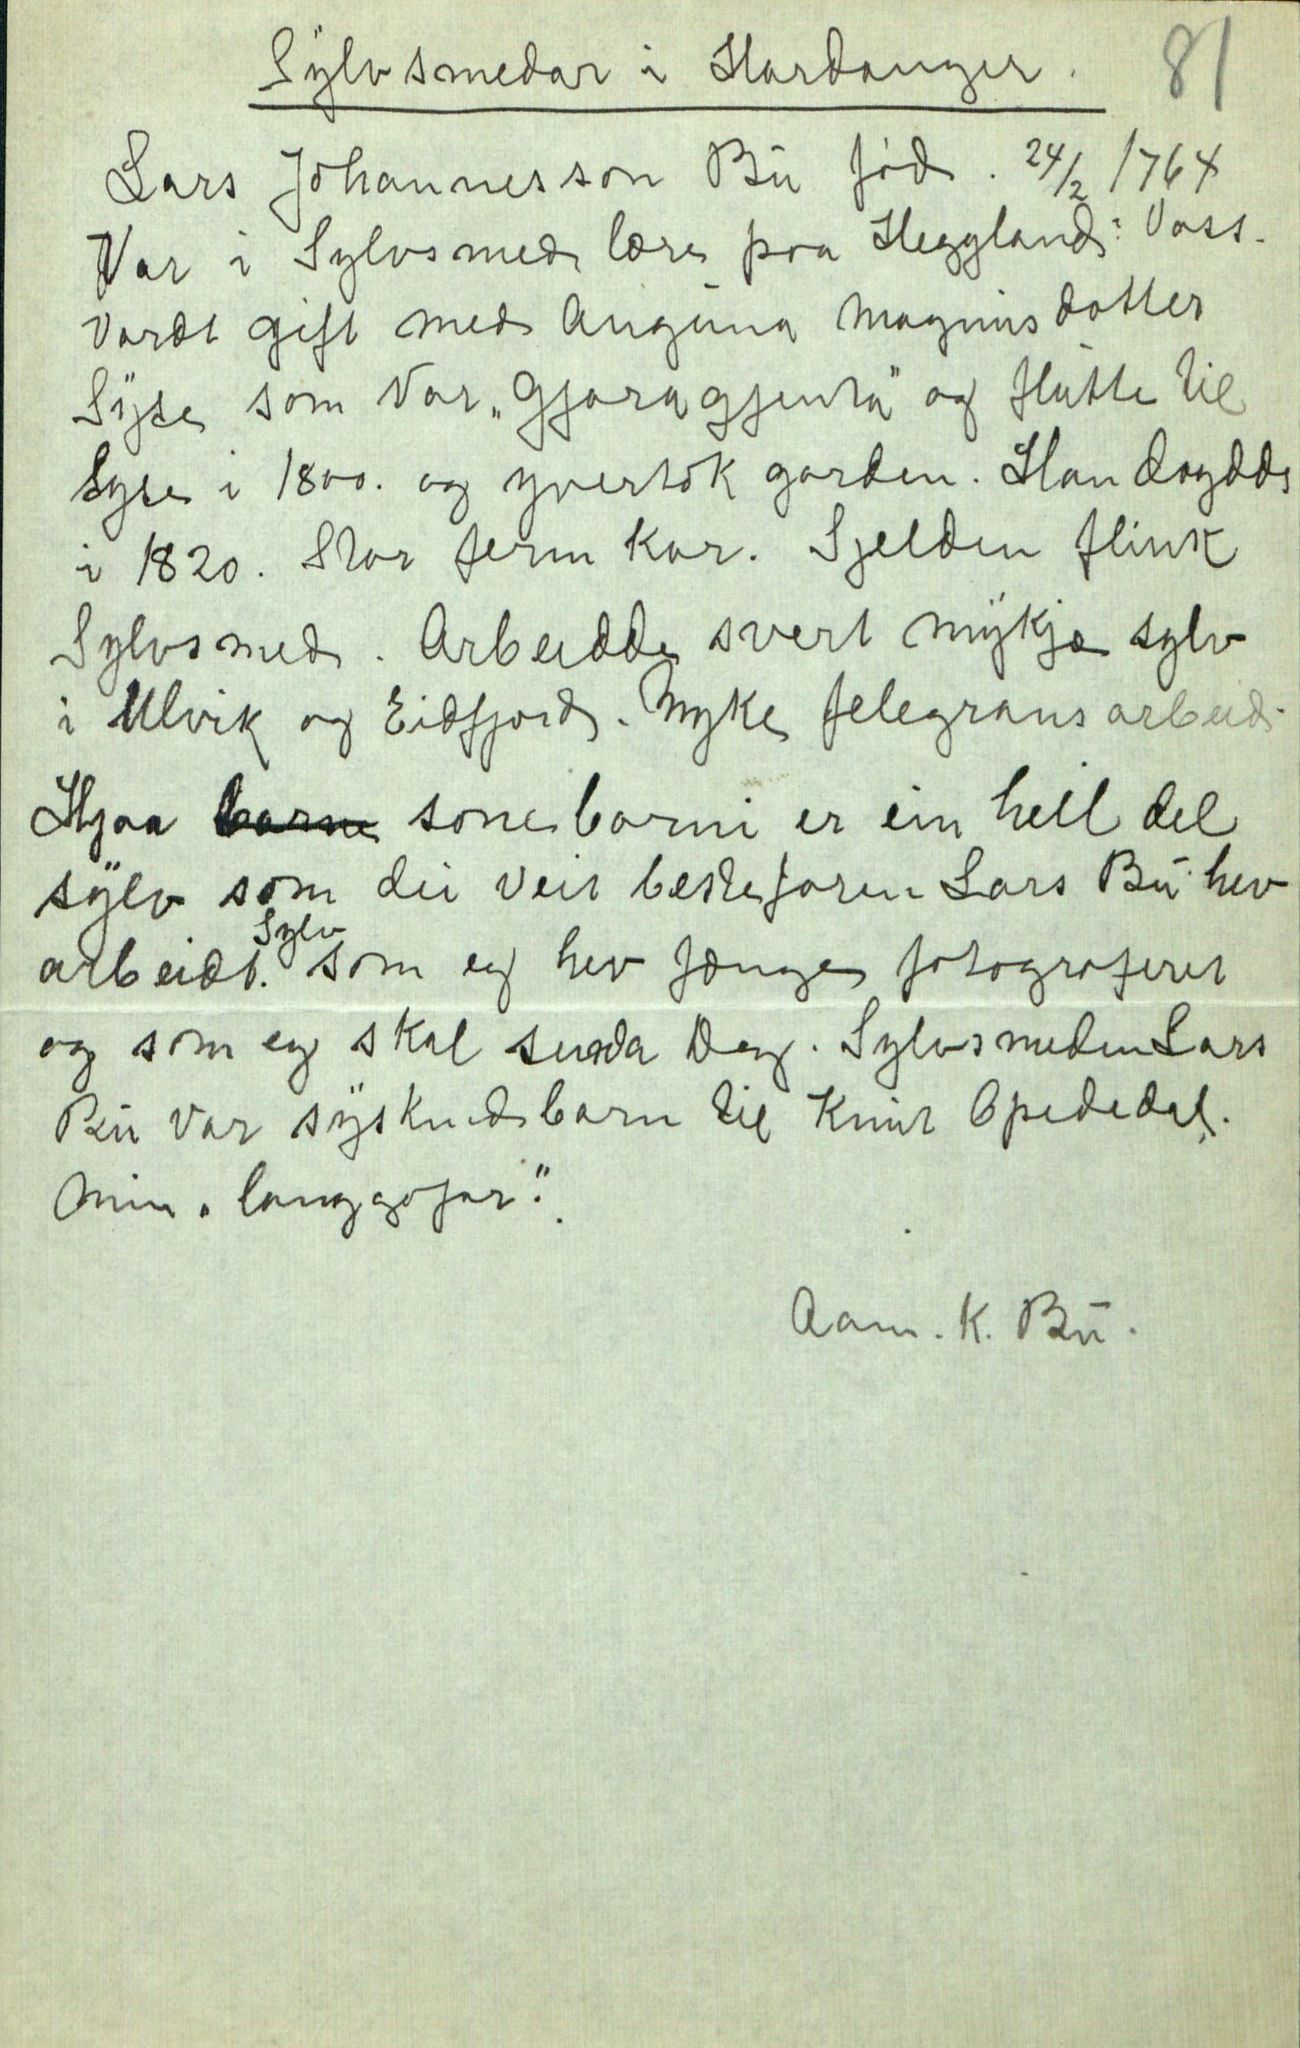 Sylvsmedar i Hardanger.
81
Lars Johannesson Bu fød. 24/2 1764
Var i Sylvsmed lære paa Heggland i Voss.
Vardt gift med Anguna Magnusdotter
Syse som Var "Gjøragjenta" og flutte til
Syse i 1800. og yvertok garden. Han døydde
i 1820. Stor ferm Kar. Sjelden flink
Sylvsmed. Arbeidde svert mykje sylv
i Ulvik og Eidfjord. Myke felegransarbeid.
Hjaa barne sonebarni er ein heil del
sylv som dei veit bestefaren Lars Bu hev
arbeidt. Sylv som eg hev fenge fotograferet
og som eg skal senda Deg. Sylvsmeden Lars
Bu Var syskendbarn til Knut Opededal.
Min "langgofar".
Aam. K. Bu.